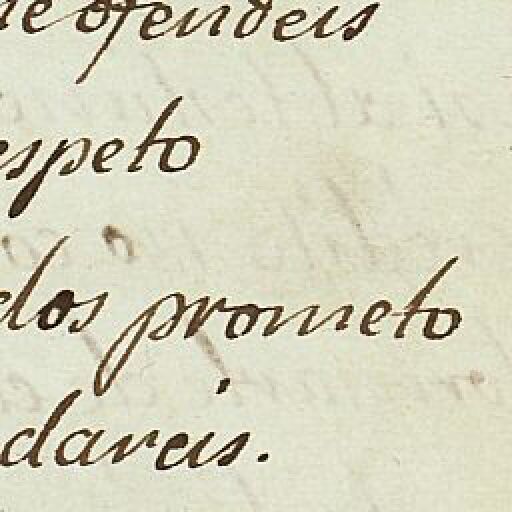 ofendeis
espeto
dos prometo
dareis.